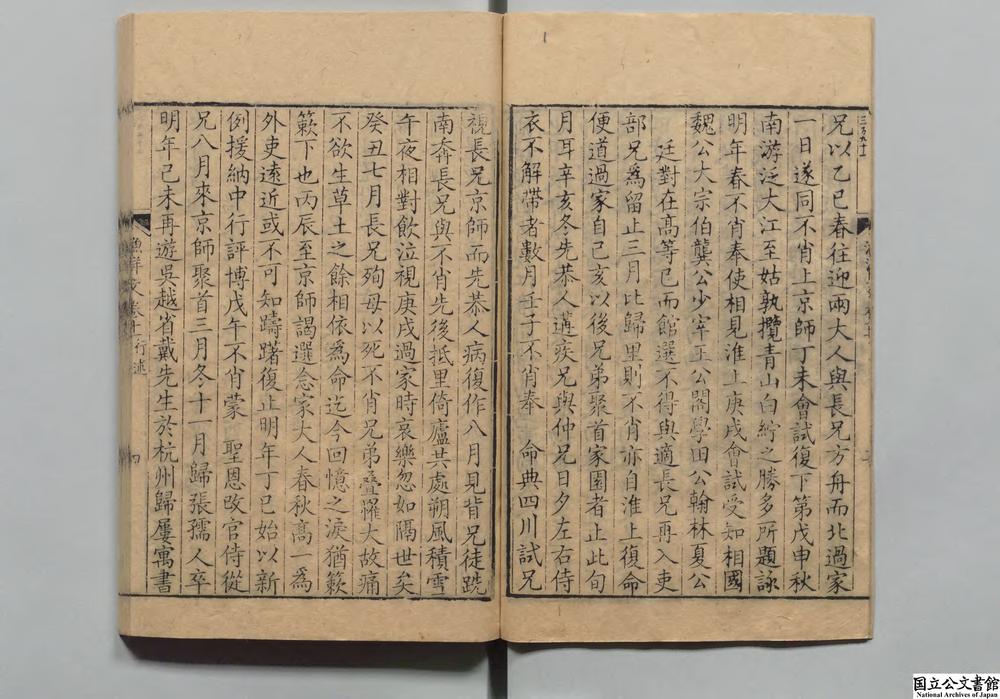 兄以乙巳春往迎兩大人與長兄方舟而北過家
一日遂同不肖上京師丁未會試復下第戊申秋
南游泛大江至姑孰攬青山白紵之勝多所題詠
明年春不肖奉使相見淮上庚戌會試受知相國
魏公大宗伯龔公少宰王公閣學田公翰林夏公
廷對在高等已而館選不得與適長兄再入吏
部兄為留止三月比歸里則不肖亦自淮上復命
便道過家自己亥以後兄弟聚首家園者止此旬
月耳辛亥冬先恭人遘疾兄與仲兄日夕左右侍
衣不解帶者數月壬子不肖奉 命典四川試兄
視長兄京師而先恭人病復作八月見背兄徒跣
南奔長兄與不肖先後抵里倚廬共處朔風積雪
午夜相對飲泣視庚戌過家時哀樂忽如隔世矣
癸丑七月長兄殉母以死不肖兄弟疊罹大故痛
不欲生草土之餘相依為命迄今回憶之淚猶簌
簌下也丙辰至京師謁選念家大人春秋高一為
外吏遠近或不可知躊躇復止明年丁巳始以新
例援納中行評博戊午不肖蒙 聖恩改官侍從
兄八月來京師聚首三月冬十一月歸張孺人卒
明年己未再遊吳越省戴先生於杭州歸屢寓書
漁洋文卷十 行述 四
国立公文書館
National Archives of Japan